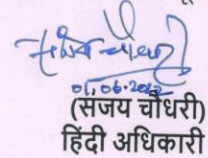 01.06.2012
(संजय चौधरी)
हिंदी अधिकारी